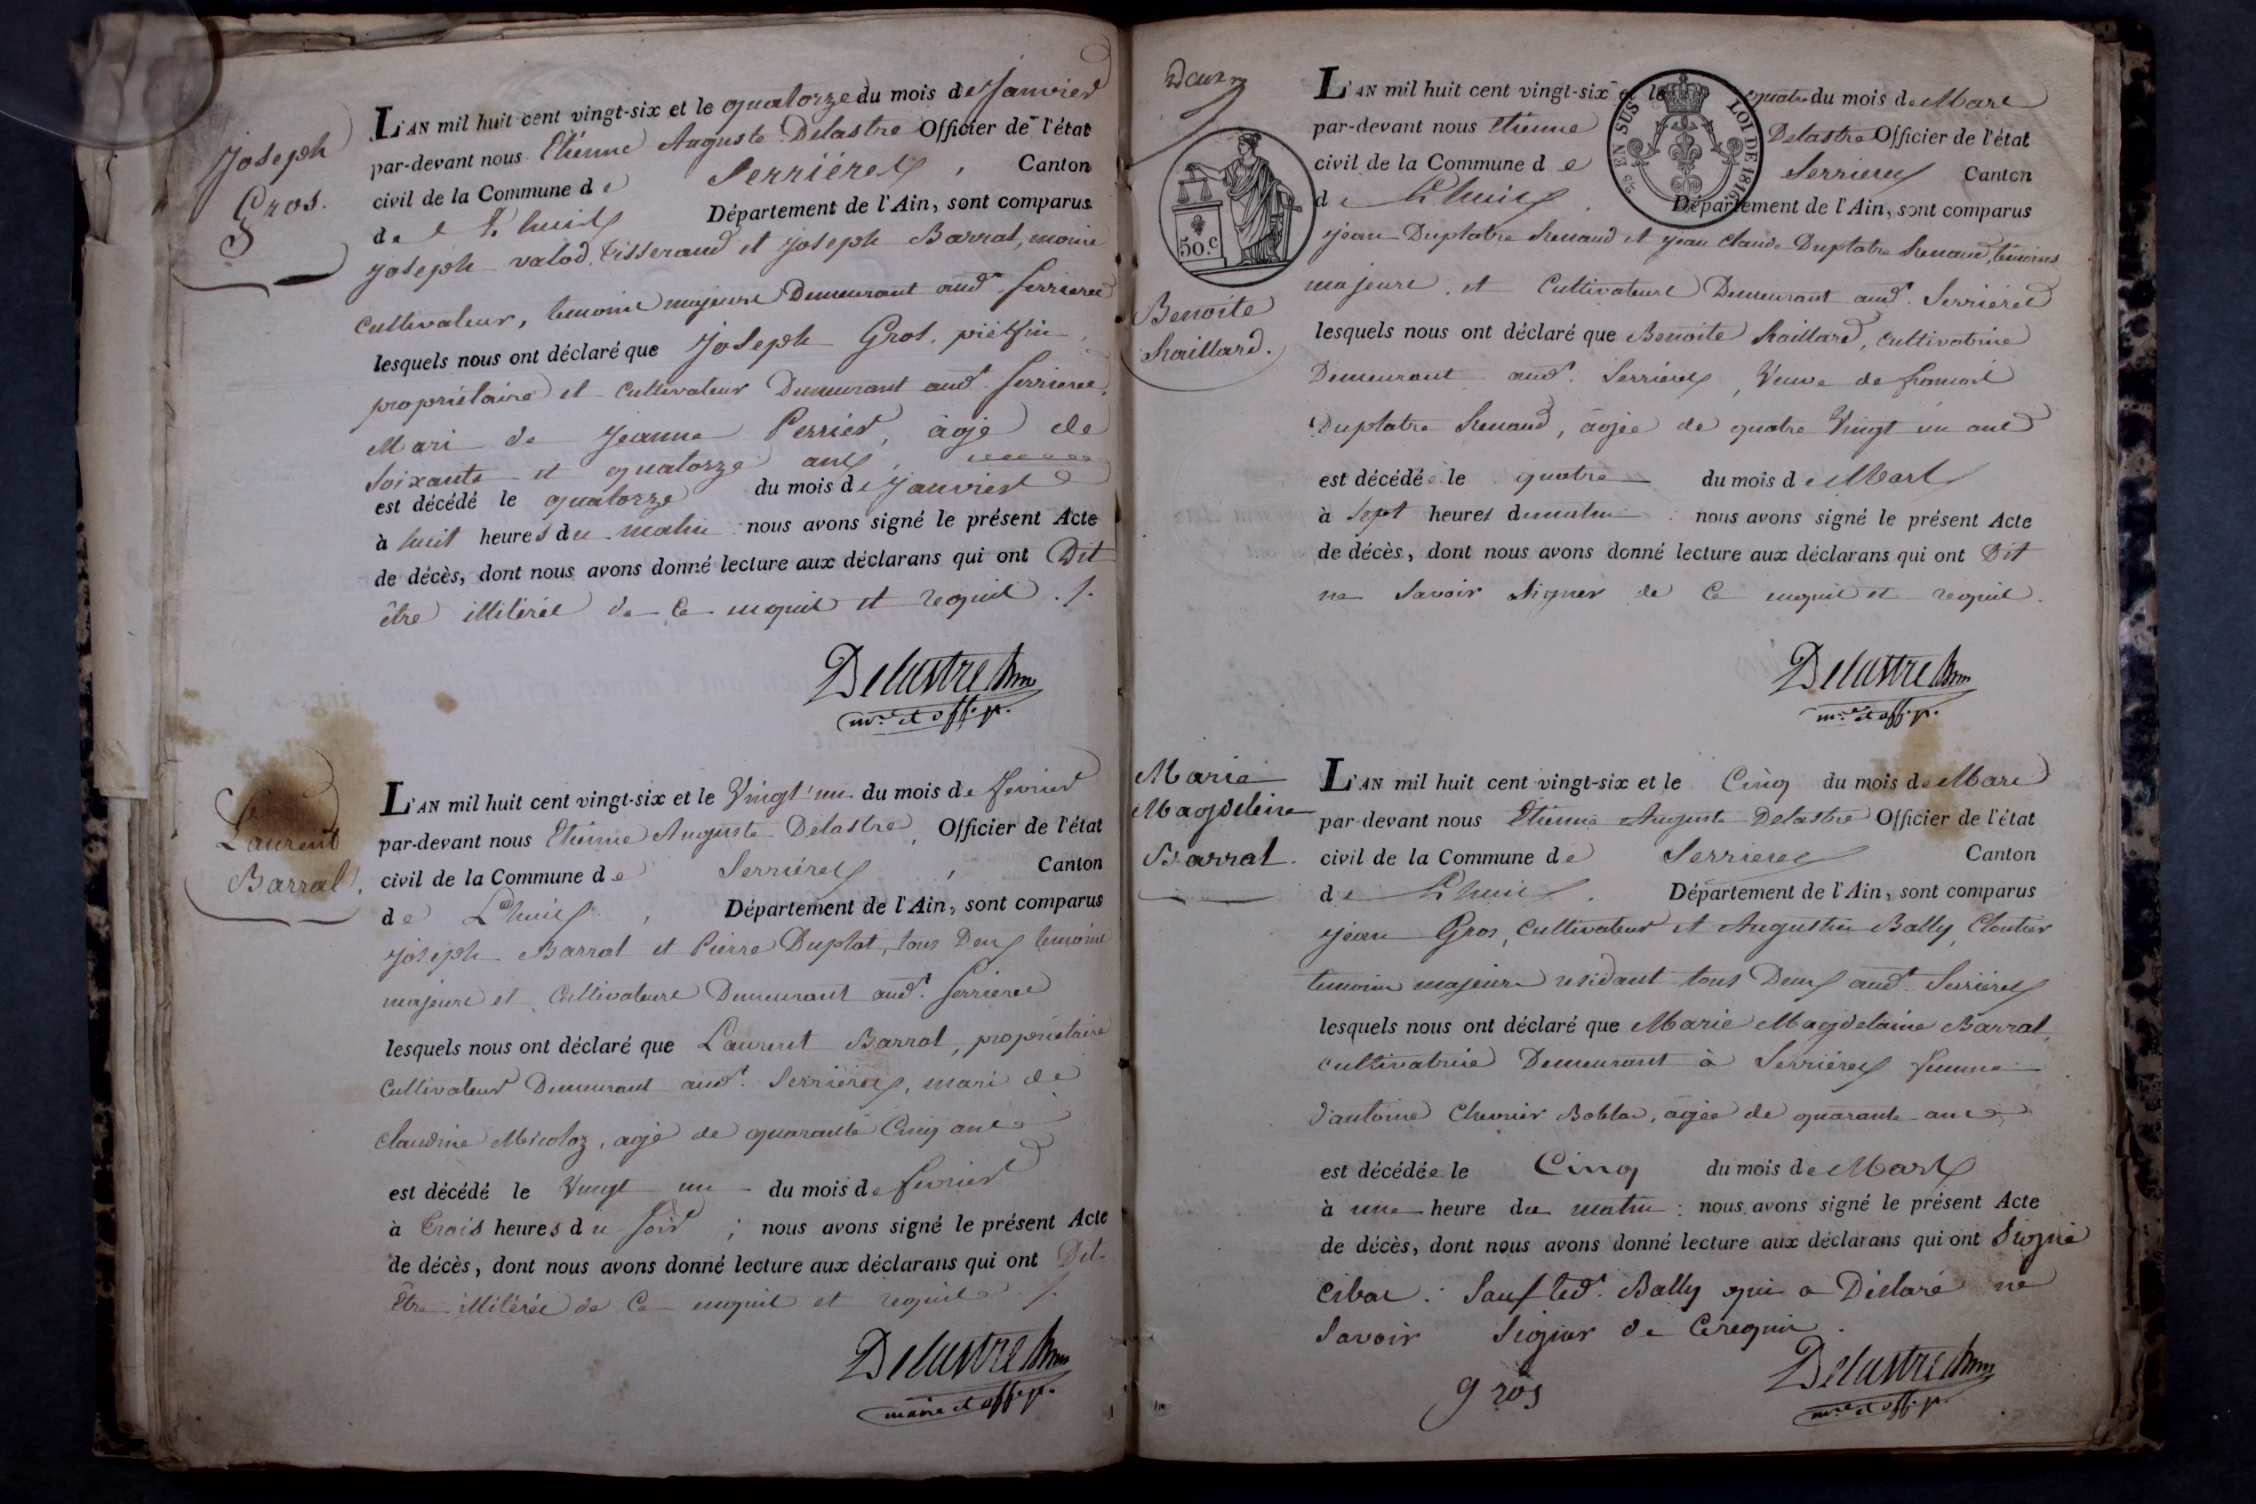 Joseph
Gros.
L'AN mil huit cent vingt-six et le quatorze du mois de Janvier
par-devant nous Etienne Auguste Delastre Officier de l'état
civil de la Commune de Serrières, Canton
de L'huis Département de l'Ain, sont comparus
joseph valod, tisserand et joseph Barral, moine
cultivateur, temoins majeurs Demeurant aud. Serrieres
lesquels nous ont déclaré que Joseph Gros,
propriétaire et Cultivateur Demeurant aud. Serrieres,
Mari de Jeanne Perrier, âgé de
soixante et quatorze ans,
est décédé le quatorze du mois de janvier
à huit heures du matin nous avons signé le présent Acte
de décès, dont nous avons donné lecture aux déclarans qui ont Dit
être illitérés de ce enquis et requis ./.
Delastre
m.re et off. p.
Laurent
Barral.
L'AN mil huit cent vingt-six et le Vingt'un du mois de fevrier
par-devant nous Etienne Auguste Delastre, Officier de l'état
civil de la Commune de Serriéres, Canton
de L'huis, Département de l'Ain, sont comparus
joseph Barral et Pierre Duplat, tous Deux temoins
majeurs et Cultivateurs Demeurant aud. Serrieres
lesquels nous ont déclaré que Laurent Barral, propriétaire
Cultivateur Demeurant aud. Serriéres, mari de
claudine Micoloz, agé de quarante Cinq ans
est décédé le Vingt un du mois de fevrier
à Trois heures du soir ; nous avons signé le présent Acte
de décès, dont nous avons donné lecture aux déclarans qui ont Dit
Être illitérés de Ce enquis et requis ./.
Delastre
maire et off. p.
Deux
50.c
EN SUS LOI DE 1816
Benoite
Raillard.
L'AN mil huit cent vingt-six et le quatre du mois de Mars
par-devant nous Etienne Delastre Officier de l'état
civil de la Commune de Serrieres Canton
de L'huis. Département de l'Ain, sont comparus
jean Duplatre Renaud et jean claude Duplatre Renaud, temoins
majeurs, et Cultivateurs Demeurant aud. Serriéres
lesquels nous ont déclaré que Benoite Raillard, cultivatrice
Demeurant aud. Serriéres, Veuve de francois
Duplatre Renaud, âgée de quatre Vingt un ans
est décédée le quatre du mois de Mars
à Sept heures du matin : nous avons signé le présent Acte
de décès, dont nous avons donné lecture aux déclarans qui ont Dit
ne Savoir Signer de Ce enquis et requis.
Delastre
m.re et off. p.
Marie
Magdeleine
Barral.
L'AN mil huit cent vingt-six et le Cinq du mois de Mars
par-devant nous Etienne Auguste Delastre Officier de l'état
civil de la Commune de Serrieres Canton
de L'huis. Département de l'Ain, sont comparus
jean Gros, Cultivateur et Augustin Bally, Cloutier
temoins majeurs residant tous Deux aud. Serriéres
lesquels nous ont déclaré que Marie Magdelaine Barral,
cultivatrice Demeurant à Serriéres femme
d'antoine Chevrier, âgée de quarante ans
est décédée le Cinq du mois de Mars
à une heure du matin : nous avons signé le présent Acte
de décès, dont nous avons donné lecture aux déclarans qui ont Signé
cibas : Sauf led. Bally qui a Déclaré ne
Savoir Signer de Ce requis.
gros
Delastre
m.re et off. p.